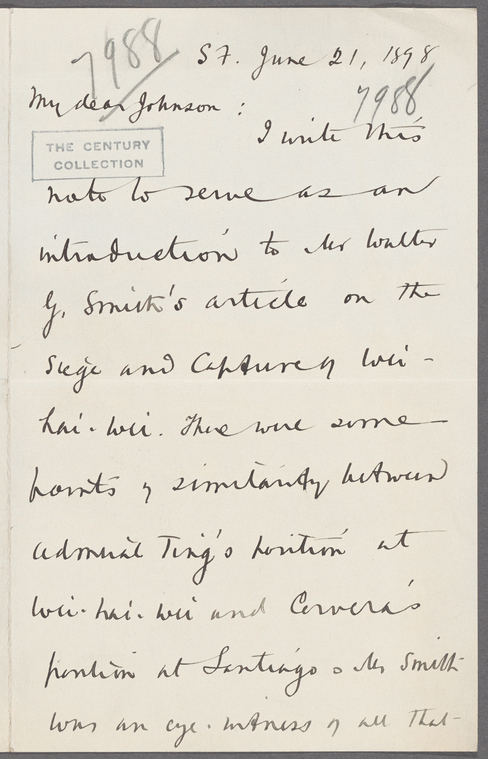 7988
S F. June 21, 1898
My dear Johnson :
7988
I write this
THE CENTURY
COLLECTION
note to serve as an
introduction to Mr Walter
G. Smith's article on the
siege and capture of Wei-
hai-wei. There were some
points of similarity between
Admiral Ting's position at
Wei-hai-wei and Cervera's
position at Santiago & Mr Smith
was an eye-witness of all that